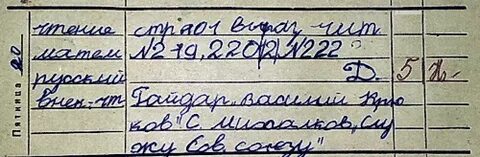 Пятница 20
чтение стр 101 выраз чит
матем №219, 220(2) №222
русский Д. 5
внек. чт Гайдар „Василий Крю
ков" С Михалков „Слу
жу Сов. союзу"